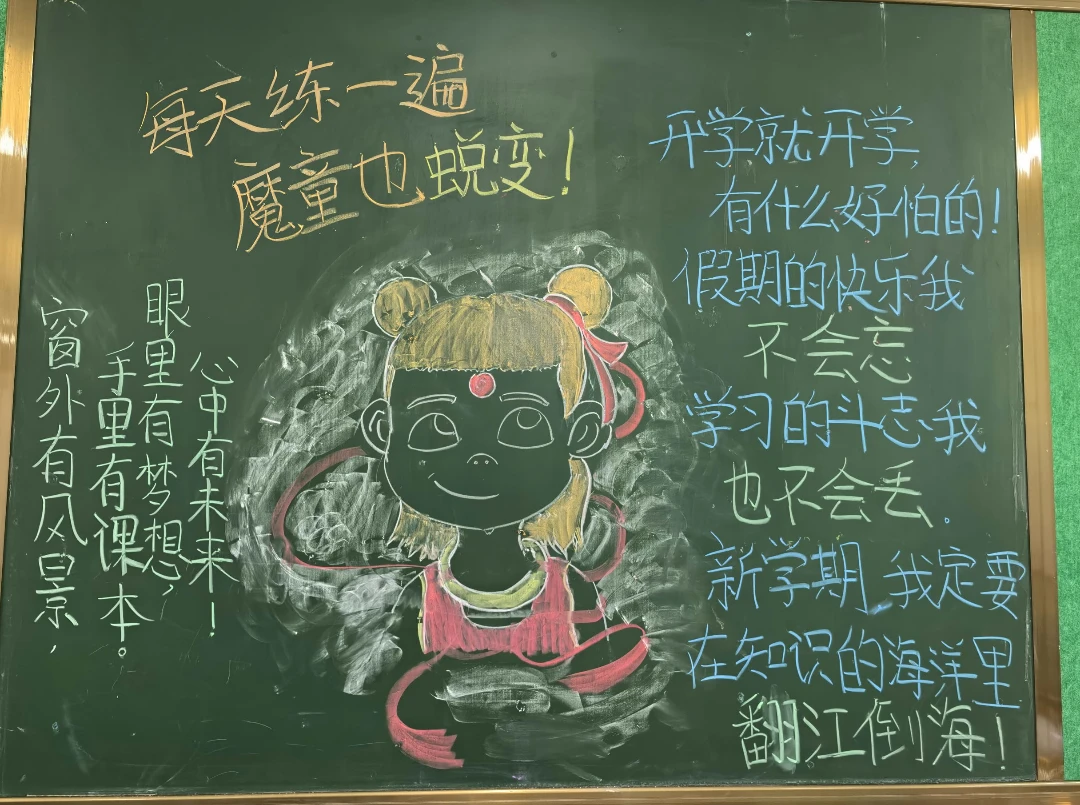 每天练一遍
魔童也蜕变！
窗外有风景，
手里有课本。
眼里有梦想，
心中有未来！
开学就开学，
有什么好怕的！
假期的快乐我
不会忘
学习的斗志我
也不会丢.
新学期，我定要
在知识的海洋里
翻江倒海！